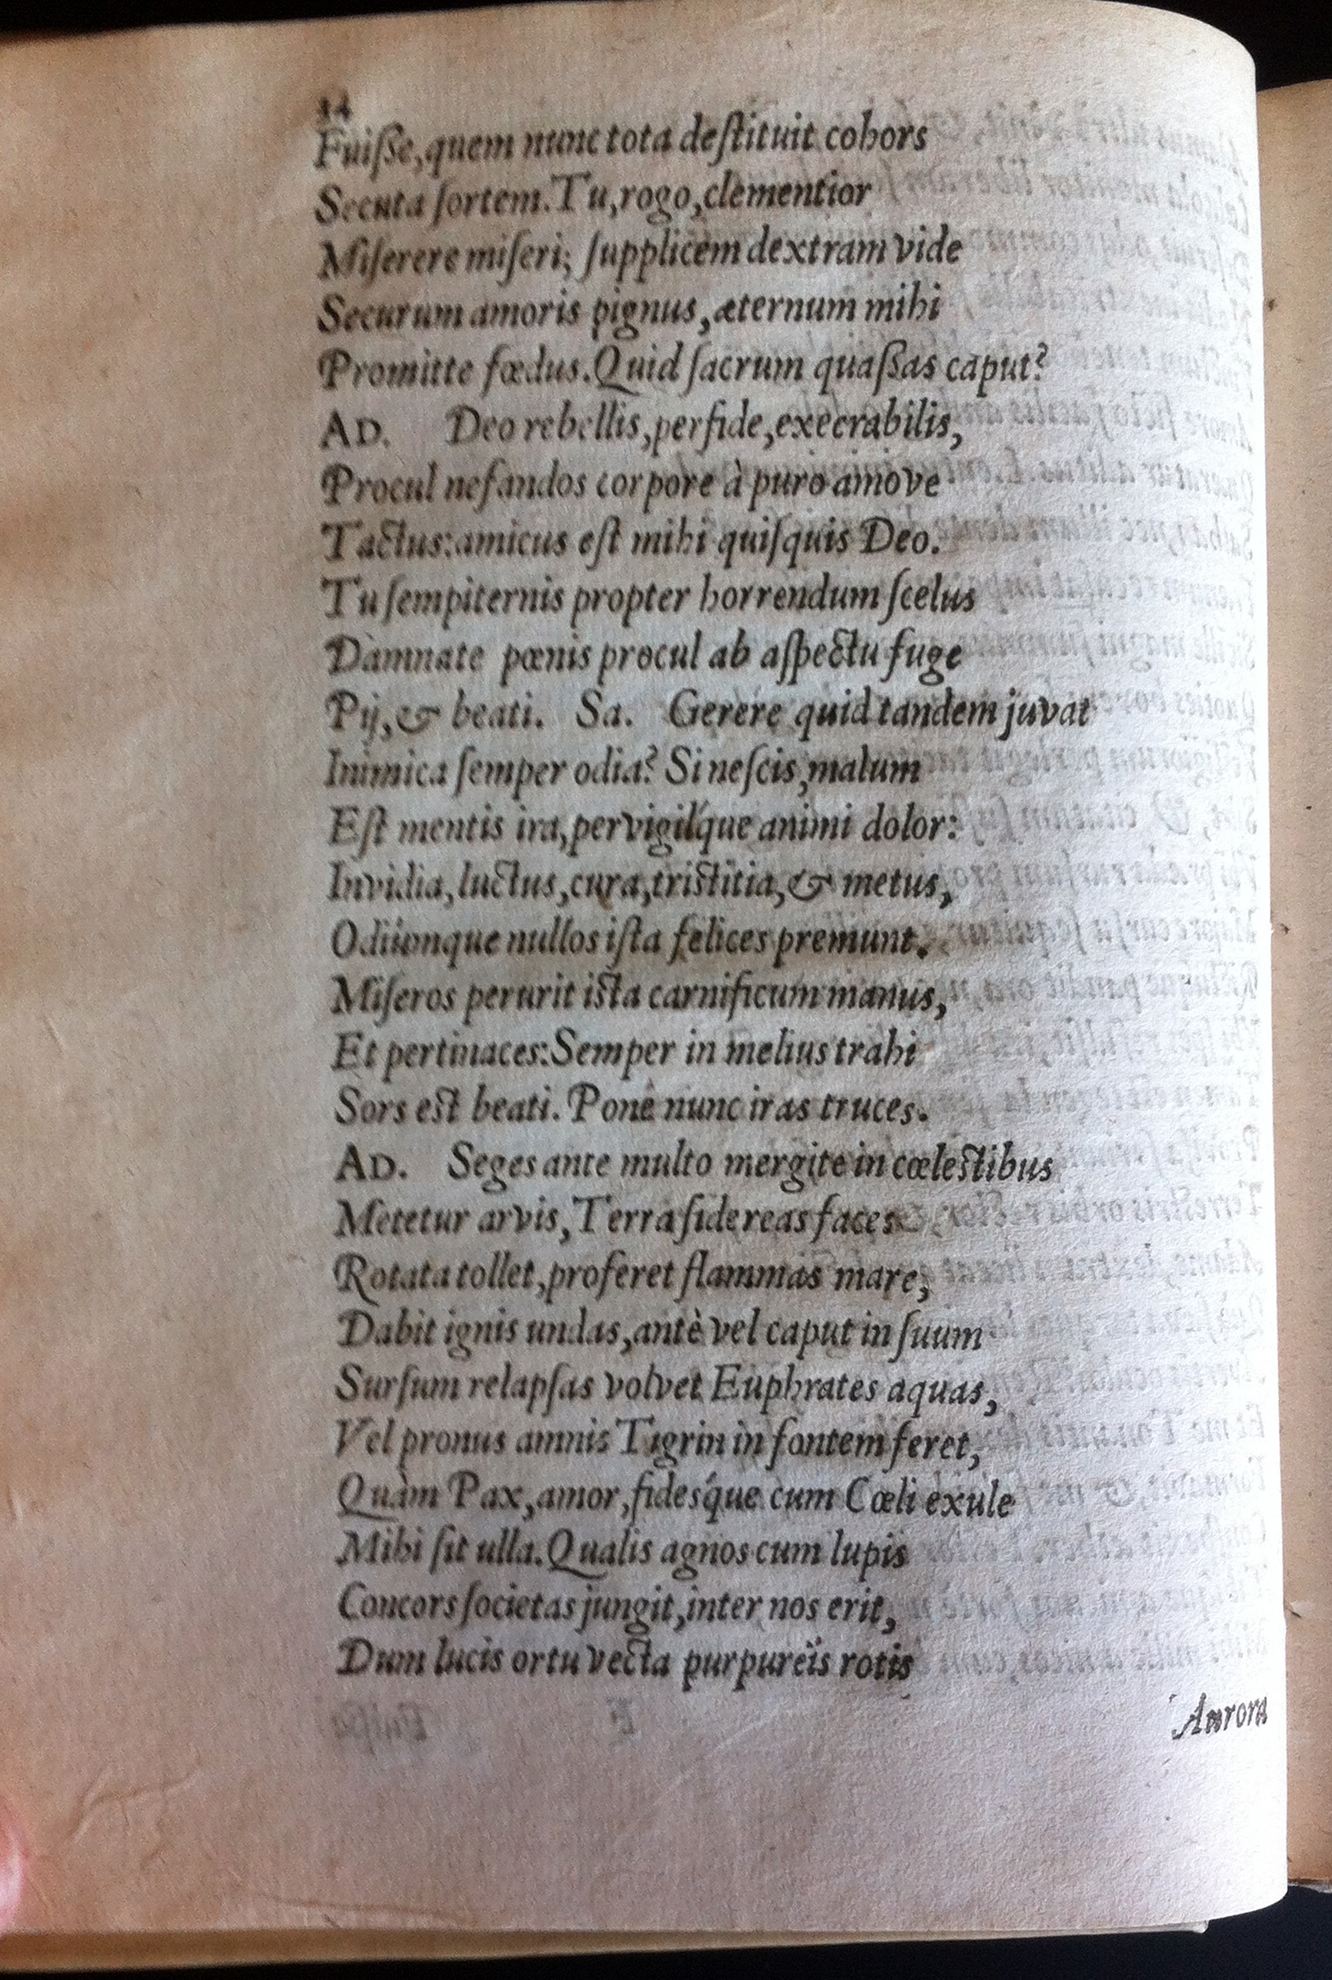 34
Fuiſſe, quem nunc tota deſtituit cohors
Secuta ſortem. Tu, rogo, clementior
Miſerere miſeri; ſupplicem dextram vide
Securum amoris pignus, æternum mihi
Promitte fœdus. Quid ſacrum quaſſas caput?
AD. Deo rebellis, perfide, execrabilis,
Procul nefandos corpore à puro amove
Tactus: amicus eſt mihi quiſquis Deo.
Tu ſempiternis propter horrendum ſcelus
Damnate pœnis procul ab aſpectu fuge
Pij, & beati. Sa. Gerere quid tandem juvat
Inimica ſemper odia? Si neſcis, malum
Eſt mentis ira, pervigilq́ue animi dolor:
Invidia, luctus, cura, triſtitia, & metus,
Odiumque nullos iſta felices premunt.
Miſeros perurit iſta carnificum manus,
Et pertinaces: Semper in melius trahi
Sors eſt beati. Pone nunc iras truces.
AD. Seges ante multo mergite in cœleſtibus
Metetur arvis, Terra ſidereas faces
Rotata tollet, proferet flammas mare,
Dabit ignis undas, antè vel caput in ſuum
Surſum relapſas volvet Euphrates aquas,
Vel pronus amnis Tigrin in fontem feret,
Quàm Pax, amor, fidesq́ue cum Cœli exule
Mihi ſit ulla. Qualis agnos cum lupis
Concors ſocietas jungit, inter nos erit,
Dum lucis ortu vecta purpureïs rotis
Aurora